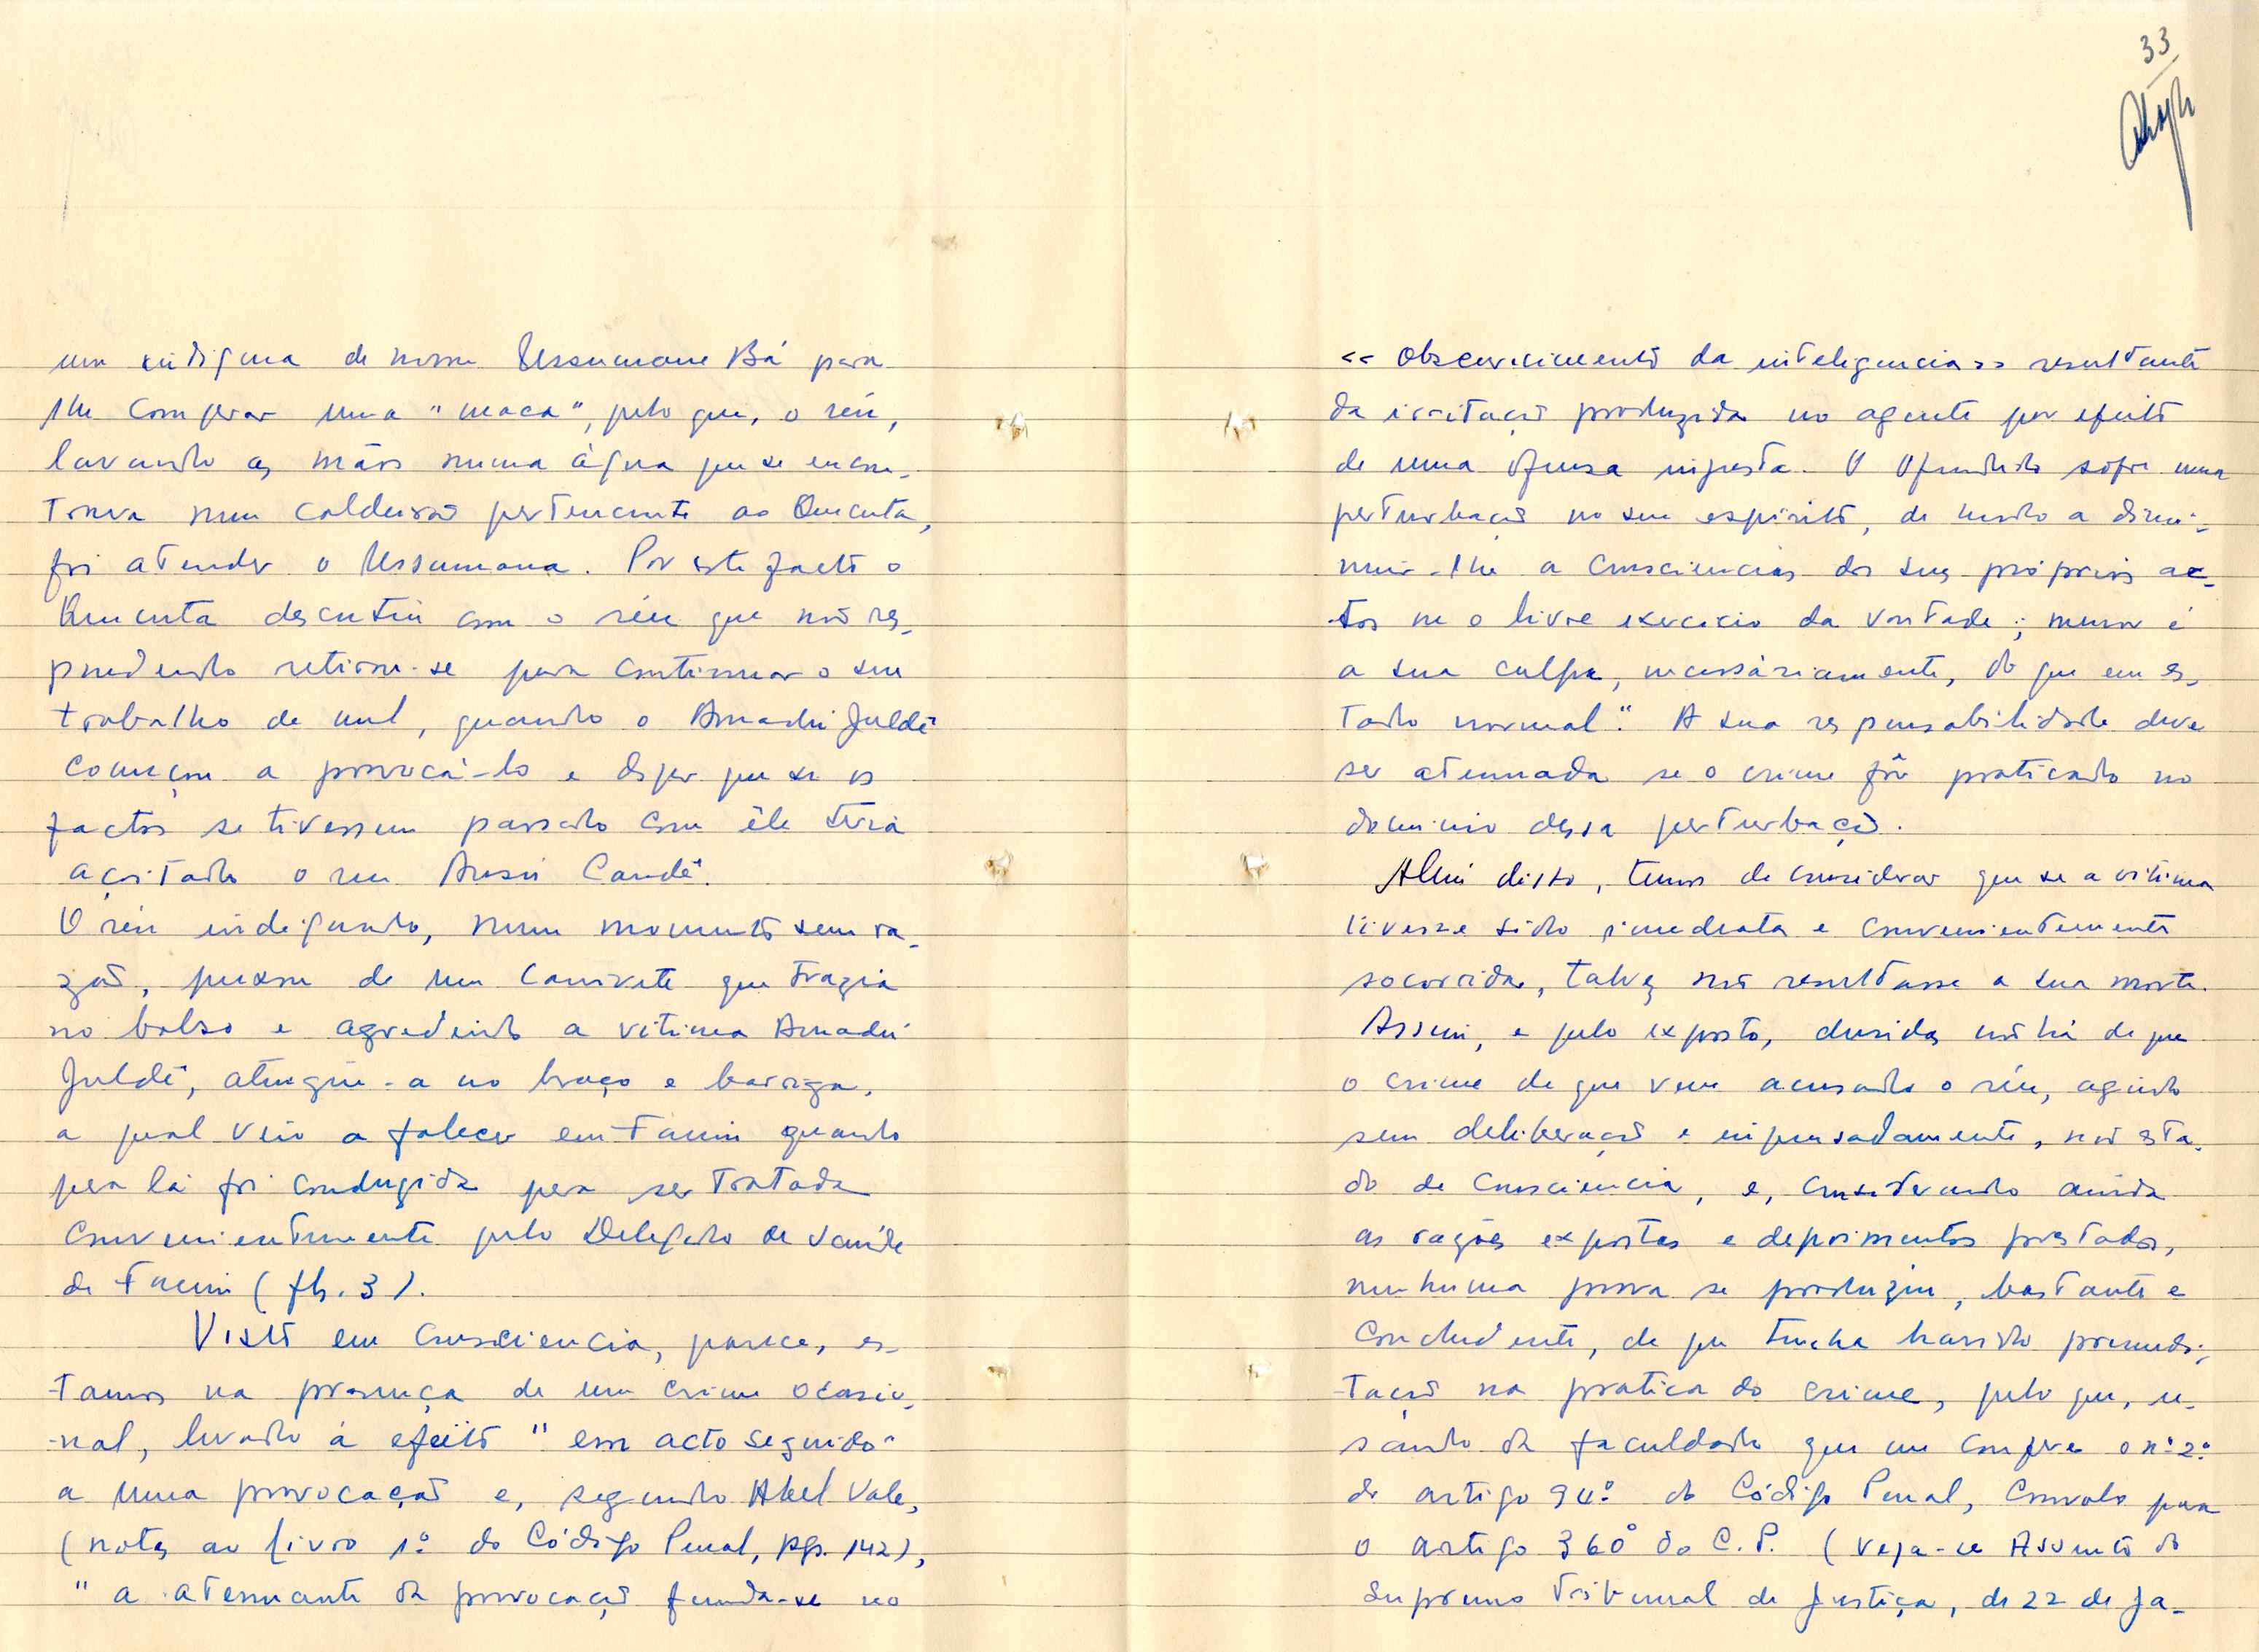 um indígena de nome Ussumane Bá para
lhe comprar uma "maca", pelo que, o réu,
lavando as mãos numa água que se encon-
trava num caldeirão pertencente ao Quecuta,
foi atender o Ussumana. Por este facto o
Quecuta descutiu com o réu que não res-
pondendo retirou-se para continuar o seu
trabalho de mel, quando o Amadú Juldé
começou a provocá-lo e disper que se os
factos se tivessem passado com êle teria
açoitado o réu Ansú Candé.
O réu indignado, num momento sem ra-
zão, puxou de um canivete que trazia
no bolso e agredindo a vitima Amadú
Juldé, atingiu-a no braço e barriga,
a qual veio a falecer em Farim quando
para lá foi conduzida para ser tratada
convenientemente pelo Delegado de Saúde
de Farim (fls. 3).
Visto em consciencia, parece, es-
tamos na presença de um crime ocasio-
-nal, levado á efeito "em acto seguido"
a uma provocação e, segundo Abel Vale,
(notas ao livro 1º do Código Penal, pgs. 142),
"a atenuante da provocação funda-se no
33
<< obscurecimento da inteligencia >> resultante
da irritação produzida no agente por efeito
de uma ofensa injusta. O ofendido sofre uma
perturbação no seu espirito, de modo a dimi-
nuir-lhe a consciencia dos seus próprios ac-
tos ne o livre exercicio da vontade; menor é
a sua culpa, necessáriamente, do que em es-
tado normal". A sua responsabilidade deve
ser atenuada se o crime fôr praticado no
dominio dessa perturbação.
Além disto, temos de considerar que se a vitima
tivesse sido imediata e convenientemente
socorrida, talvez não resultasse a sua morte.
Assim, e pelo exposto, duvidas não há de que
o crime de que vem acusado o réu, agindo
sem deliberação e impensadamente, no esta-
do de consciencia, e, considerando ainda
as razões expostas e depoimentos prestados,
nenhuma prova se produziu, bastante e
concludente, de que tenha havido premedi-
tação na pratica do crime, pelo que, u-
sando da faculdade que me confere o nº 2º
do artigo 94º do Código Penal, convolo para
o artigo 360º do C.P. (veja-se Assento do
Supremo Tribunal de Justiça, de 22 de Ja-